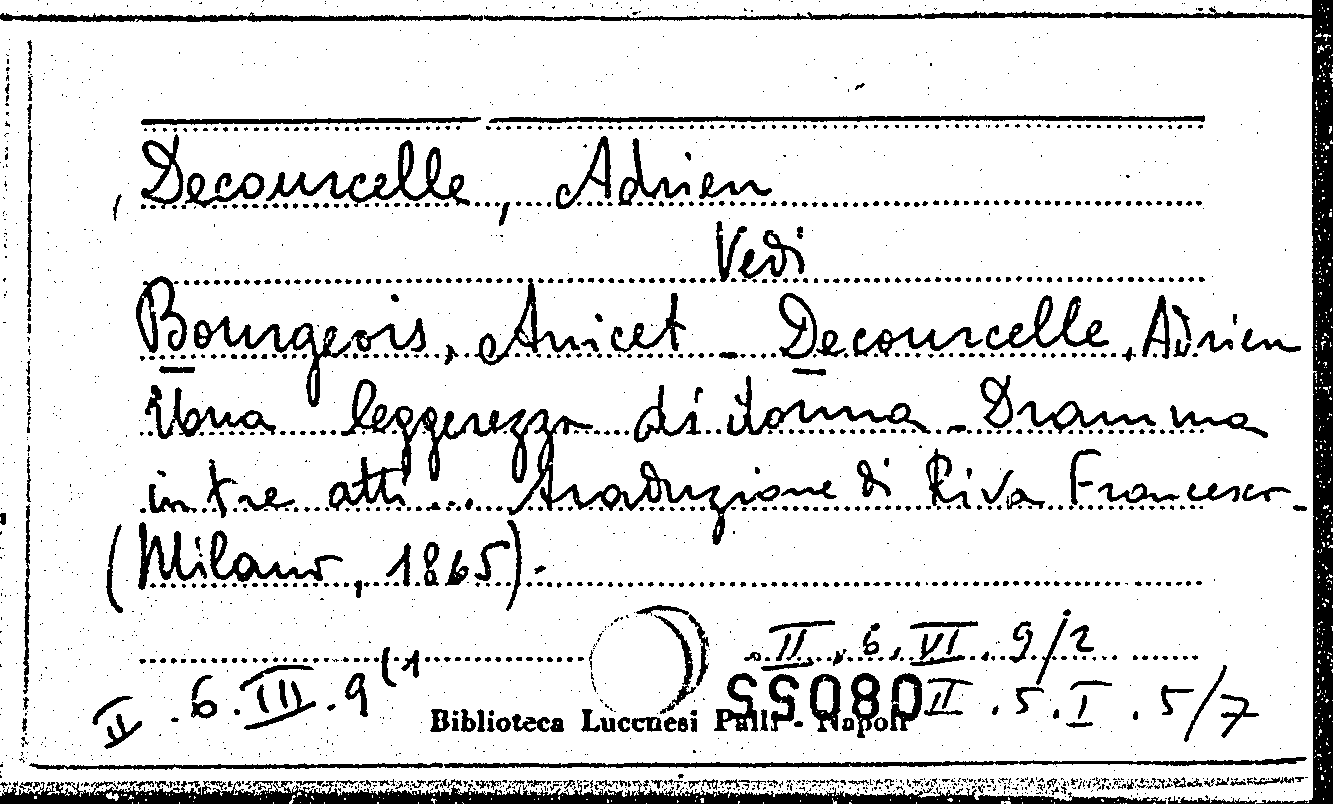 Decourcelle, Adrien
Vedi
Bourgeois, Anicet - Decourcelle, Adrien
Una leggerezza di donna - Dramma
in tre atti... traduzione di Riva Francesco -
(Milano, 1865).-
II. 6. VI. 9/2
II. 6. III. 9(1
II. 5. I. 5/7
08055
Biblioteca Lucchesi Palli - Napoli